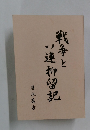 戦争と
ソ連抑留記